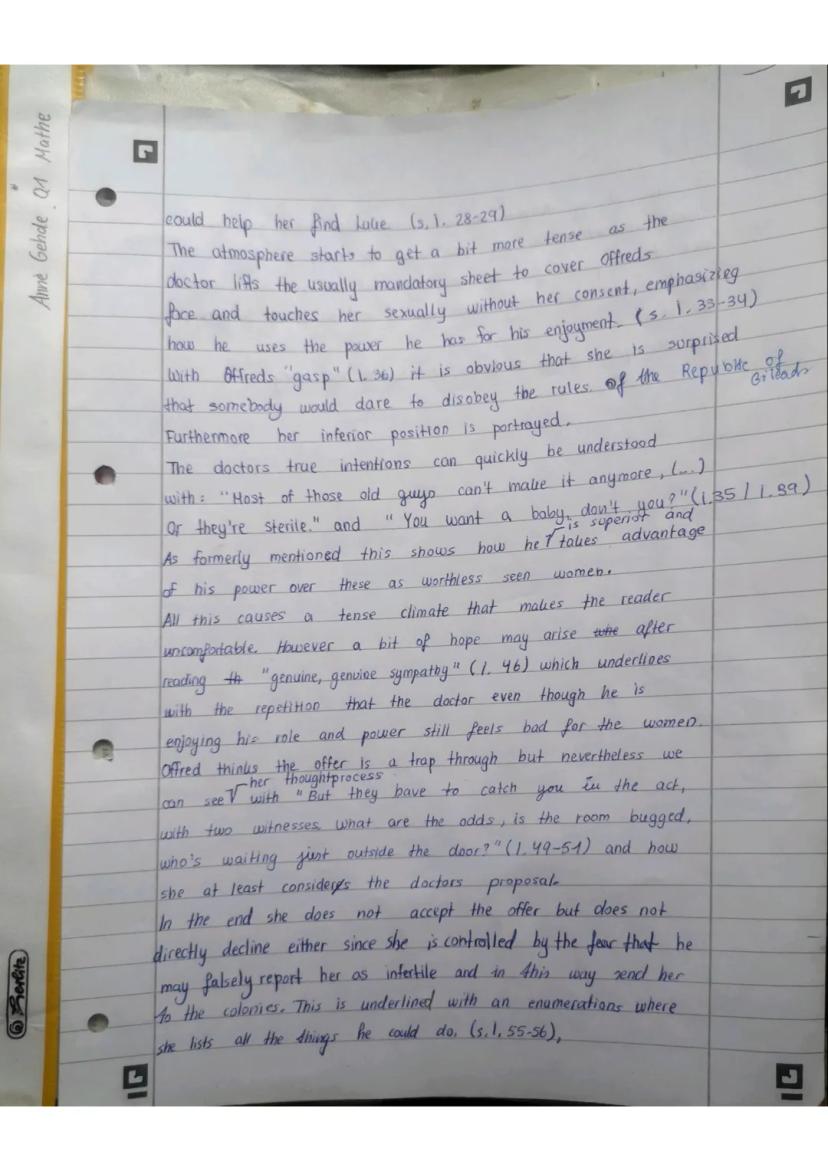 Anne Gehde Q1 Mathe
could help her find Luke (s. l. 28-29)
The atmosphere starts to get a bit more tense as the
doctor lifts the usually mandatory sheet to cover Offreds
face and touches her sexually without her consent, emphasizieg
how he uses the power he has for his enjoyment. (s. l. 33-34)
With Offreds "gasp" (l. 36) it is obvious that she is surprised
that somebody would dare to disobey the rules of the Republic of
Gilead
Furthermore her inferior position is portrayed.
The doctors true intentions can quickly be understood
with: "Most of those old guys can't make it anymore, (...)
Or they're sterile." and "You want a baby, don't you?" (l. 35 / l. 39)
is superior and
As formerly mentioned this shows how he takes advantage
of his power over these as worthless seen women.
All this causes a tense climate that makes the reader
uncomfortable. However a bit of hope may arise after
reading "genuine, genuine sympathy" (l. 46) which underlines
with the repetition that the doctor even though he is
enjoying his role and power still feels bad for the women.
Offred thinks the offer is a trap through but nevertheless we
her thoughtprocess
can see with "But they have to catch you in the act,
with two witnesses. What are the odds, is the room bugged,
who's waiting just outside the door?" (l. 49-51) and how
she at least considers the doctors proposal.
In the end she does not accept the offer but does not
directly decline either since she is controlled by the fear that he
may falsely report her as infertile and in this way send her
to the colonies. This is underlined with an enumerations where
she lists all the things he could do. (s. l. 55-56),
Berlitz